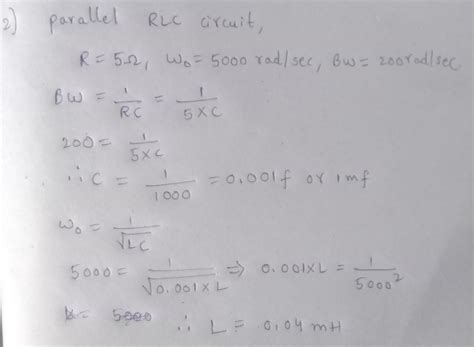 2) parallel RLC circuit,
R = 5Ω, ω₀ = 5000 rad/sec, BW = 200rad/sec
BW = 1/RC = 1/5×C
200 = 1/5×C
∴ C = 1/1000 = 0.001f or 1mf
ω₀ = 1/√LC
5000 = 1/√0.001×L ⇒ 0.001×L = 1/5000²
= 5000 ∴ L = 0.04 mH